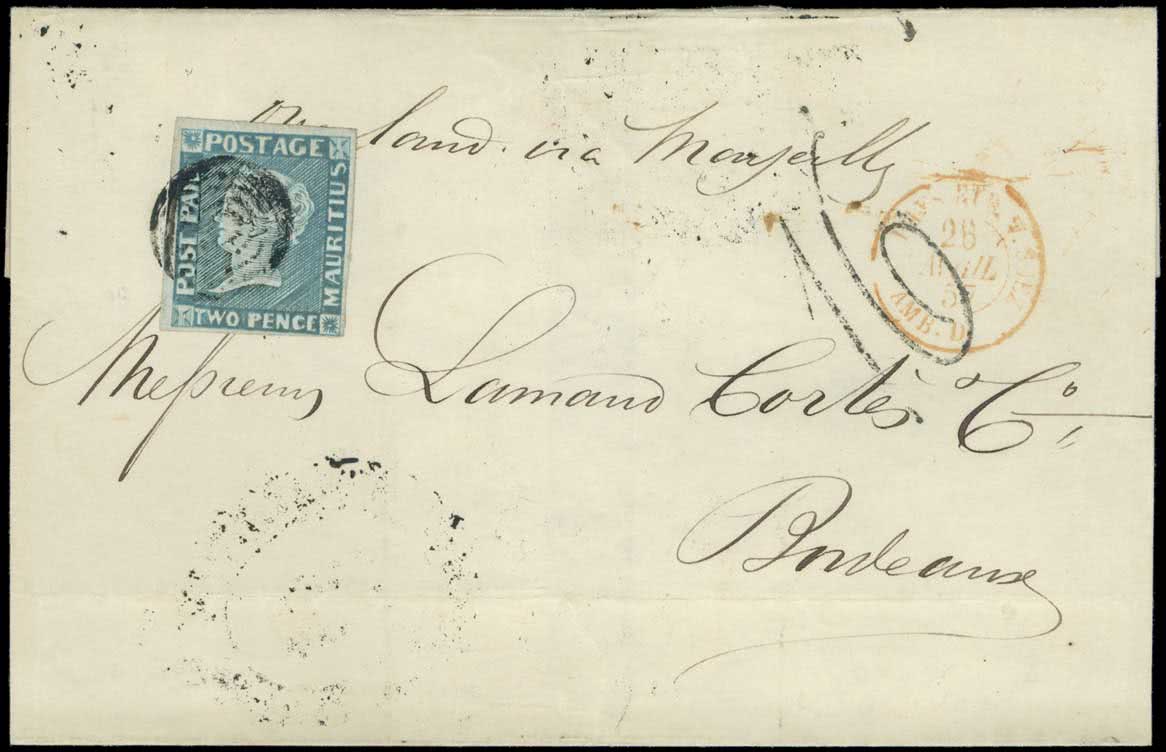 POSTAGE
POST PAID
MAURITIUS
TWO PENCE
land via Marseille
10
26
AVRIL
57
AMB. D
Messieurs Lamand Cortès & Cº
Bordeaux